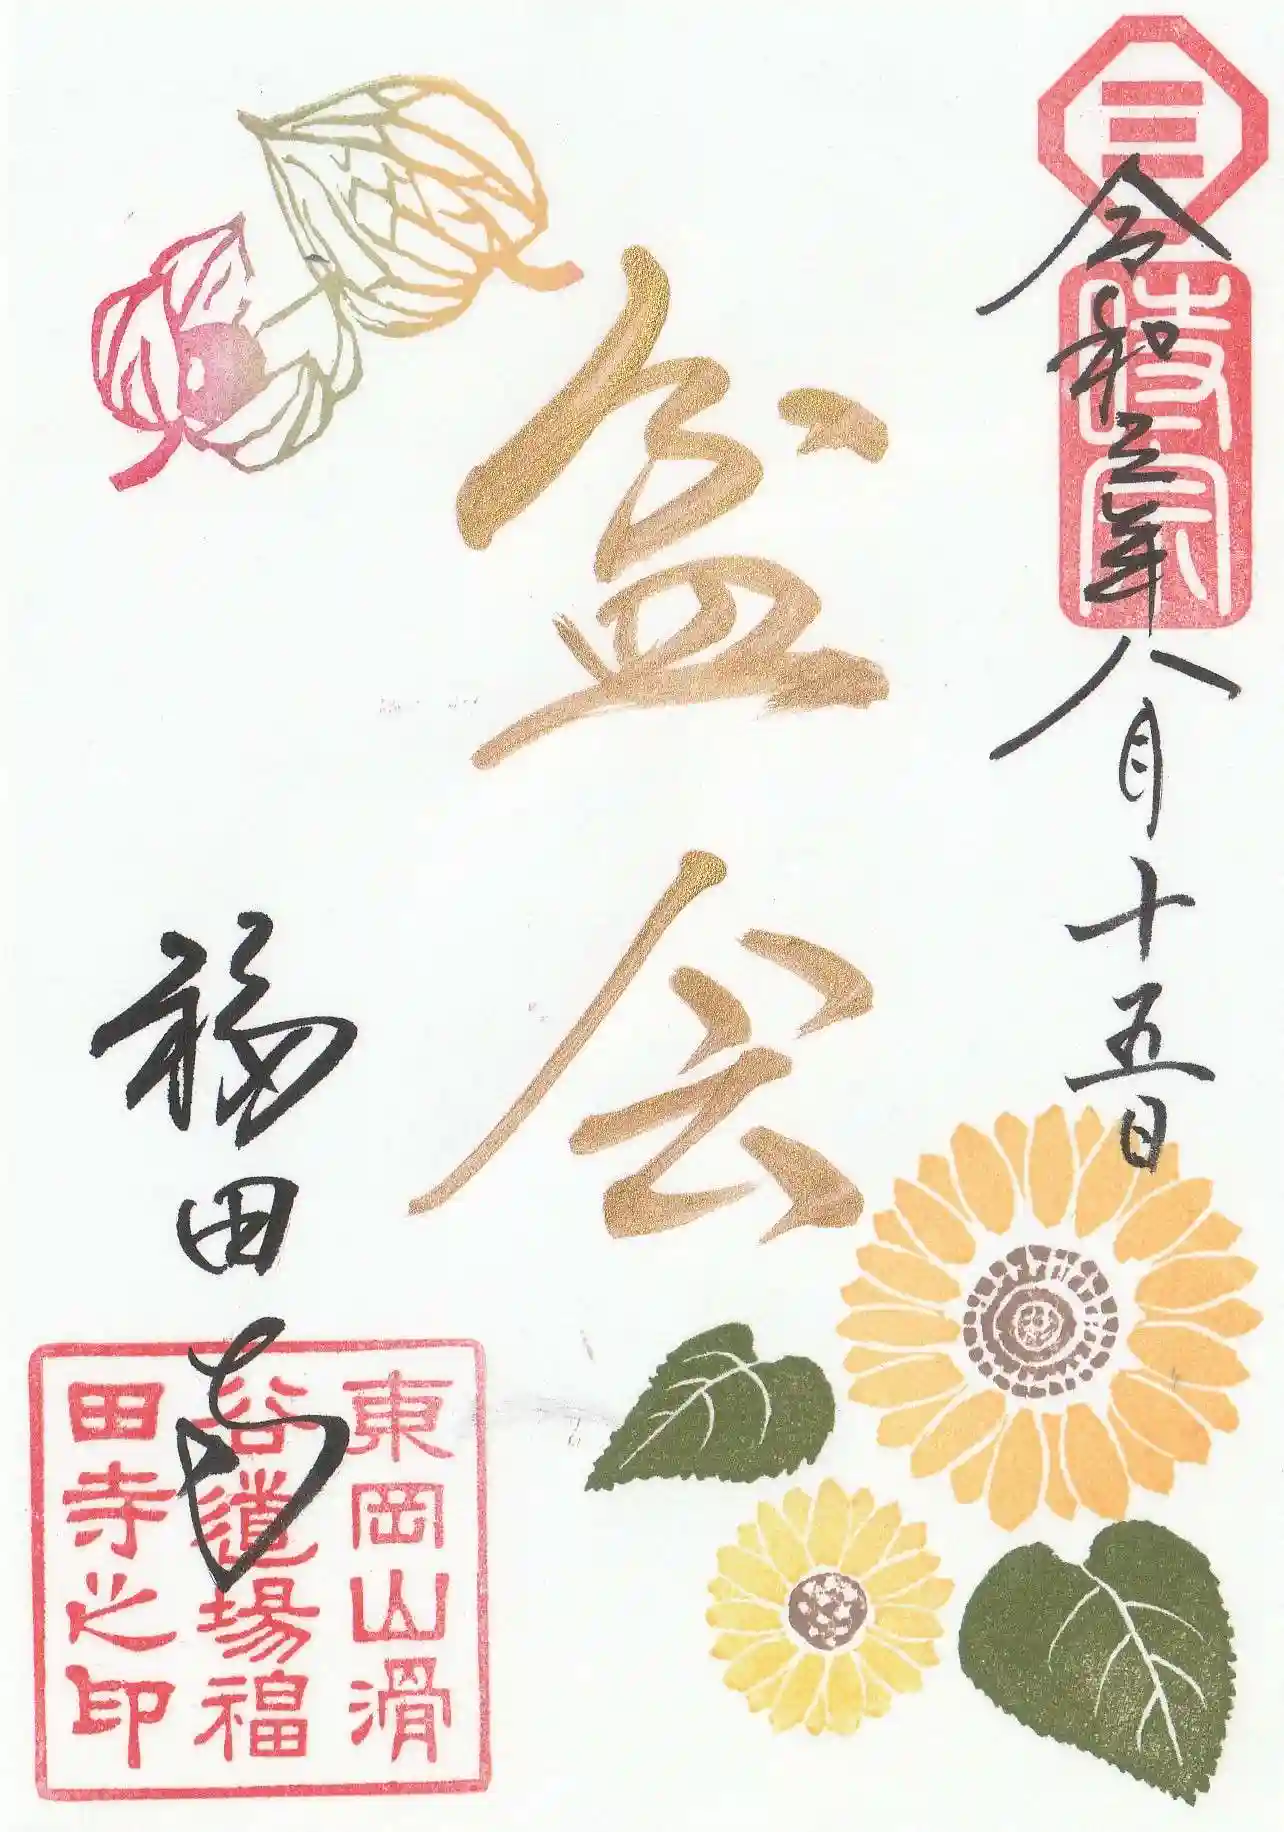 令和三年八月十五日
時宗
盆会
福田寺
東岡山滑
谷道場福
田寺之印